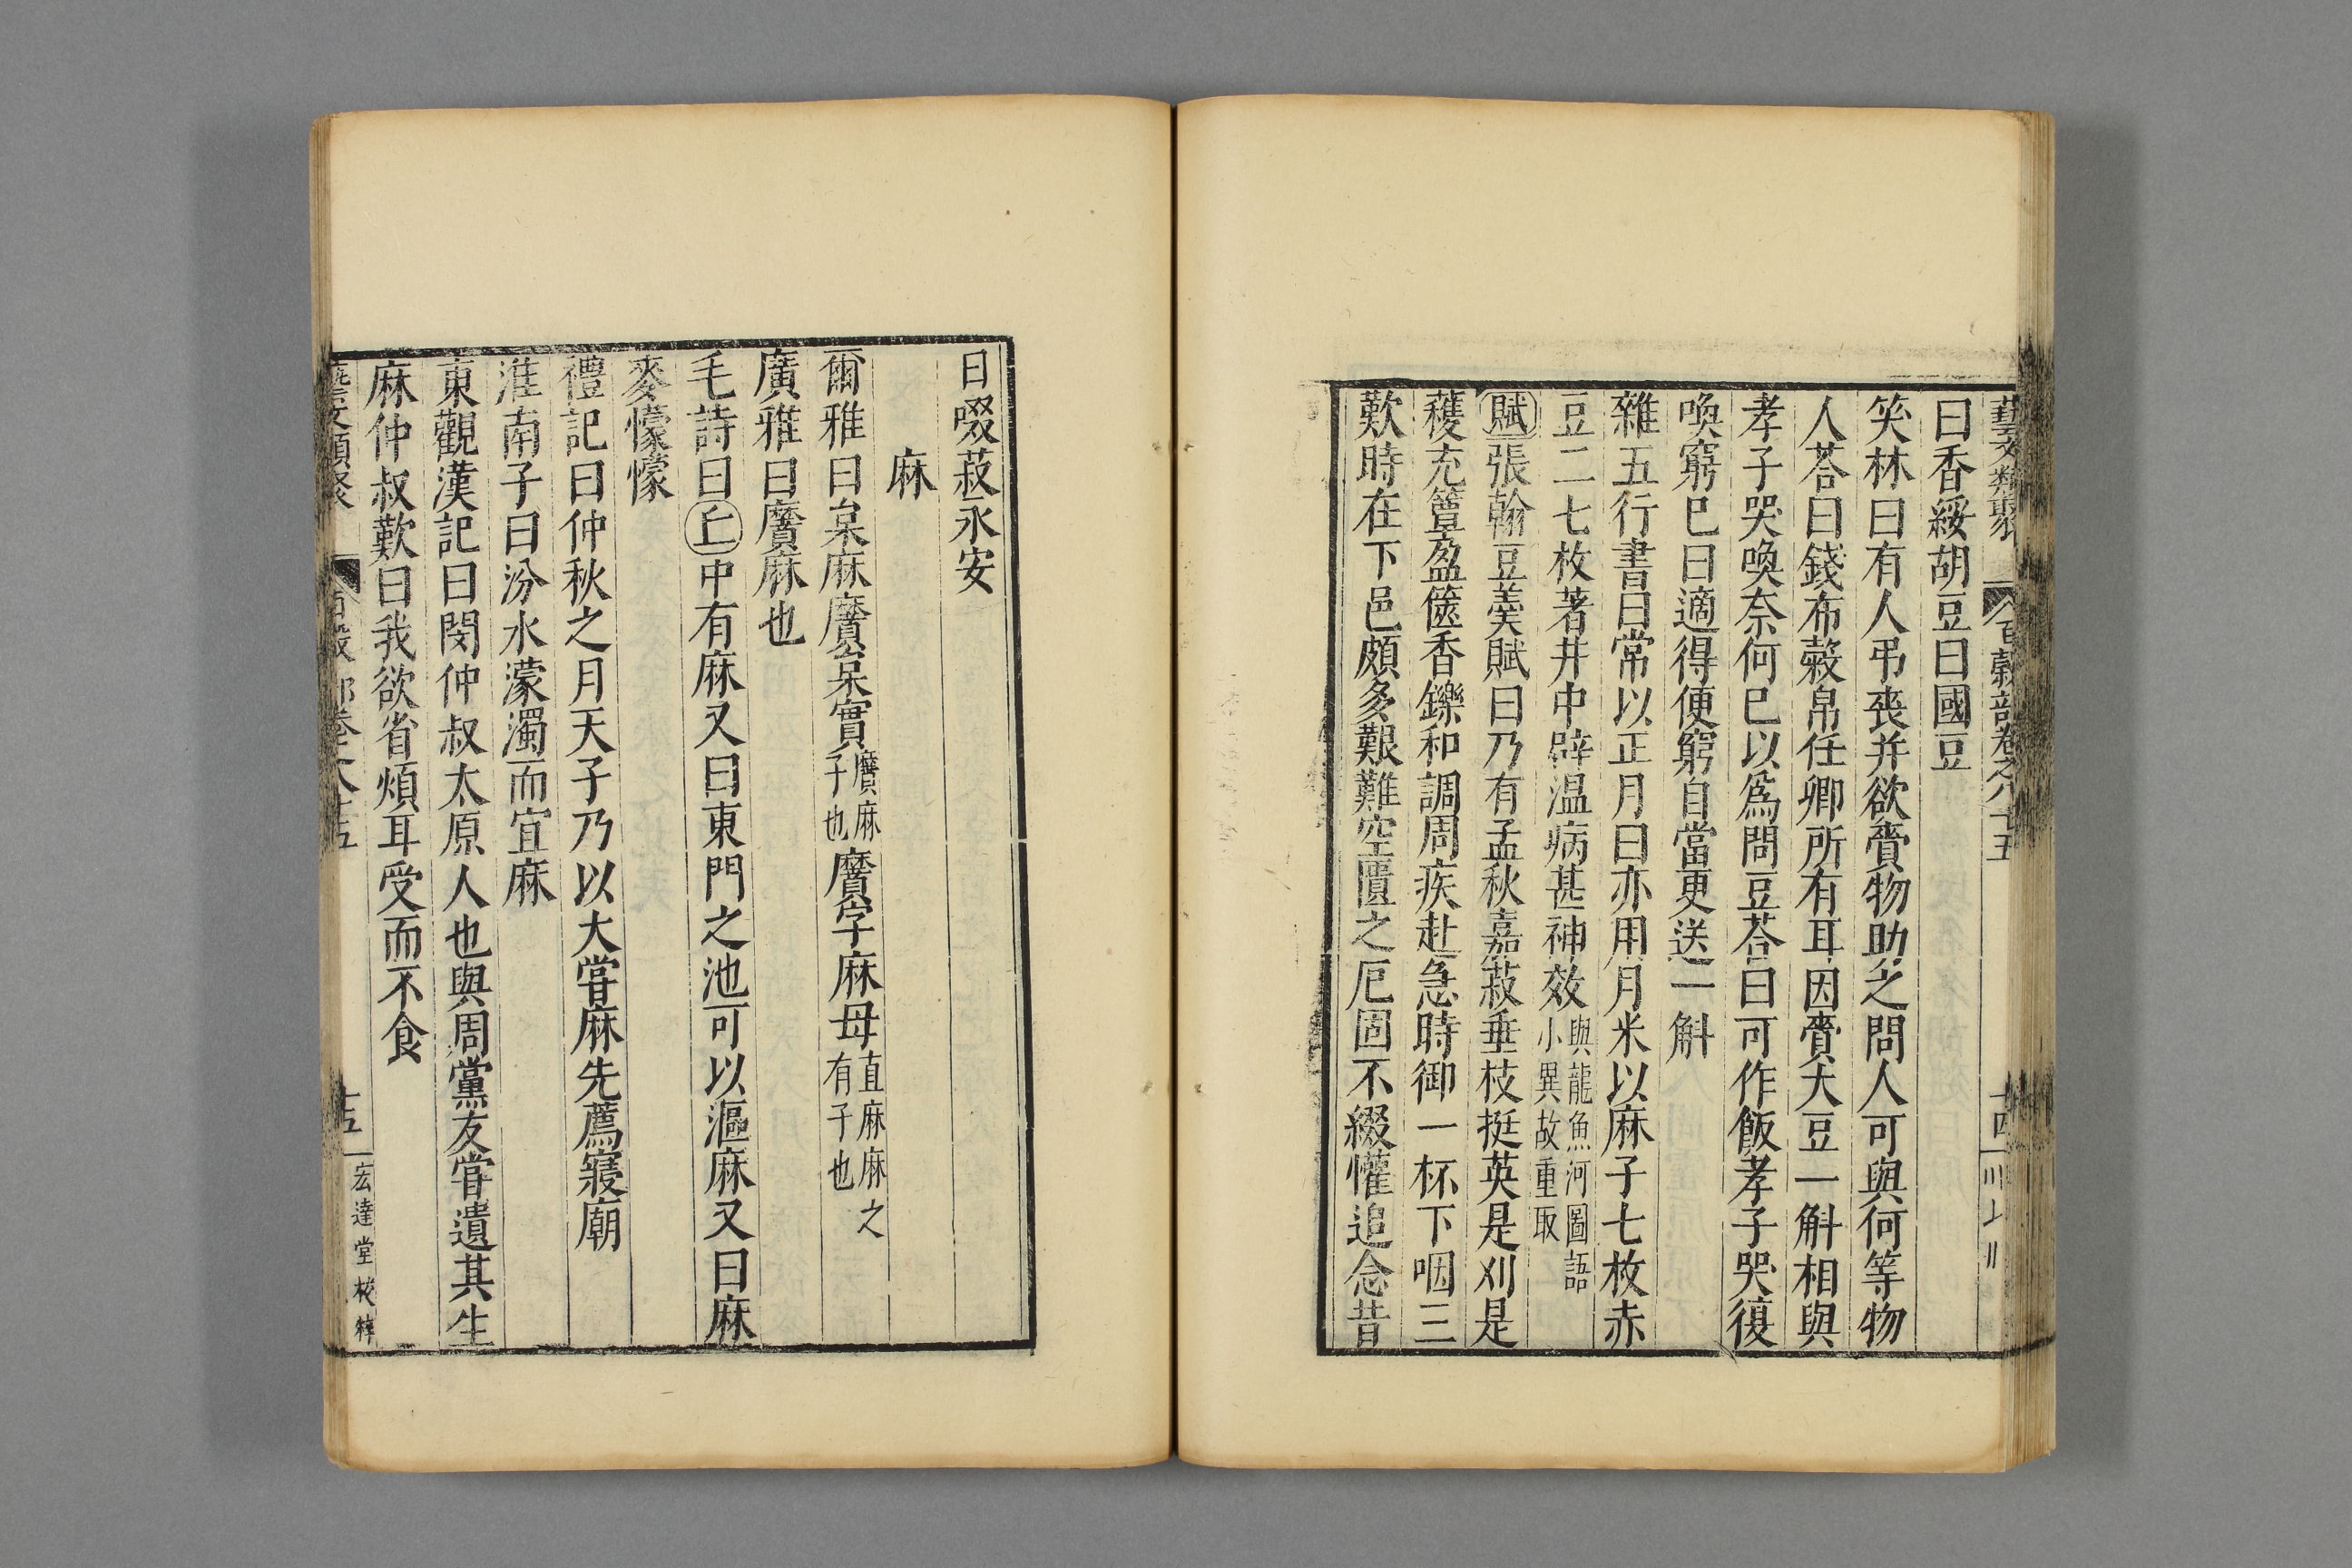 藝文類聚 百穀部卷之八十五 十四
曰香綏胡豆曰國豆
笑林曰有人弔喪并欲賷物助之問人可與何等物
人荅曰錢布糓帛任卿所有耳因賷大豆一斛相與
孝子哭喚奈何巳以爲問豆荅曰可作飯孝子哭復
喚窮巳曰適得便窮自當更送一斛
雜五行書曰常以正月旦亦用月米以麻子七枚赤
豆二七枚著井中辟温病甚神效與龍魚河圖語小異故重取
賦張翰豆羮賦曰乃有孟秋嘉菽垂枝挺英是刈是
穫充簞盈篋香鑠和調周疾赴急時御一杯下咽三
歎時在下邑頗多艱難空匱之厄固不綴懽追念昔
日啜菽永安
麻
爾雅曰枲麻黂枲實黂麻子也黂字麻母苴麻麻之有子也
廣雅曰黂麻也
毛詩曰丘中有麻又曰東門之池可以漚麻又曰麻
麥幪幪
禮記曰仲秋之月天子乃以犬甞麻先薦寢廟
淮南子曰汾水濛濁而宜麻
東觀漢記曰閔仲叔太原人也與周黨友甞遺其生
麻仲叔歎曰我欲省煩耳受而不食
藝文類聚 百穀部卷之八十五 十五 宏達堂校梓